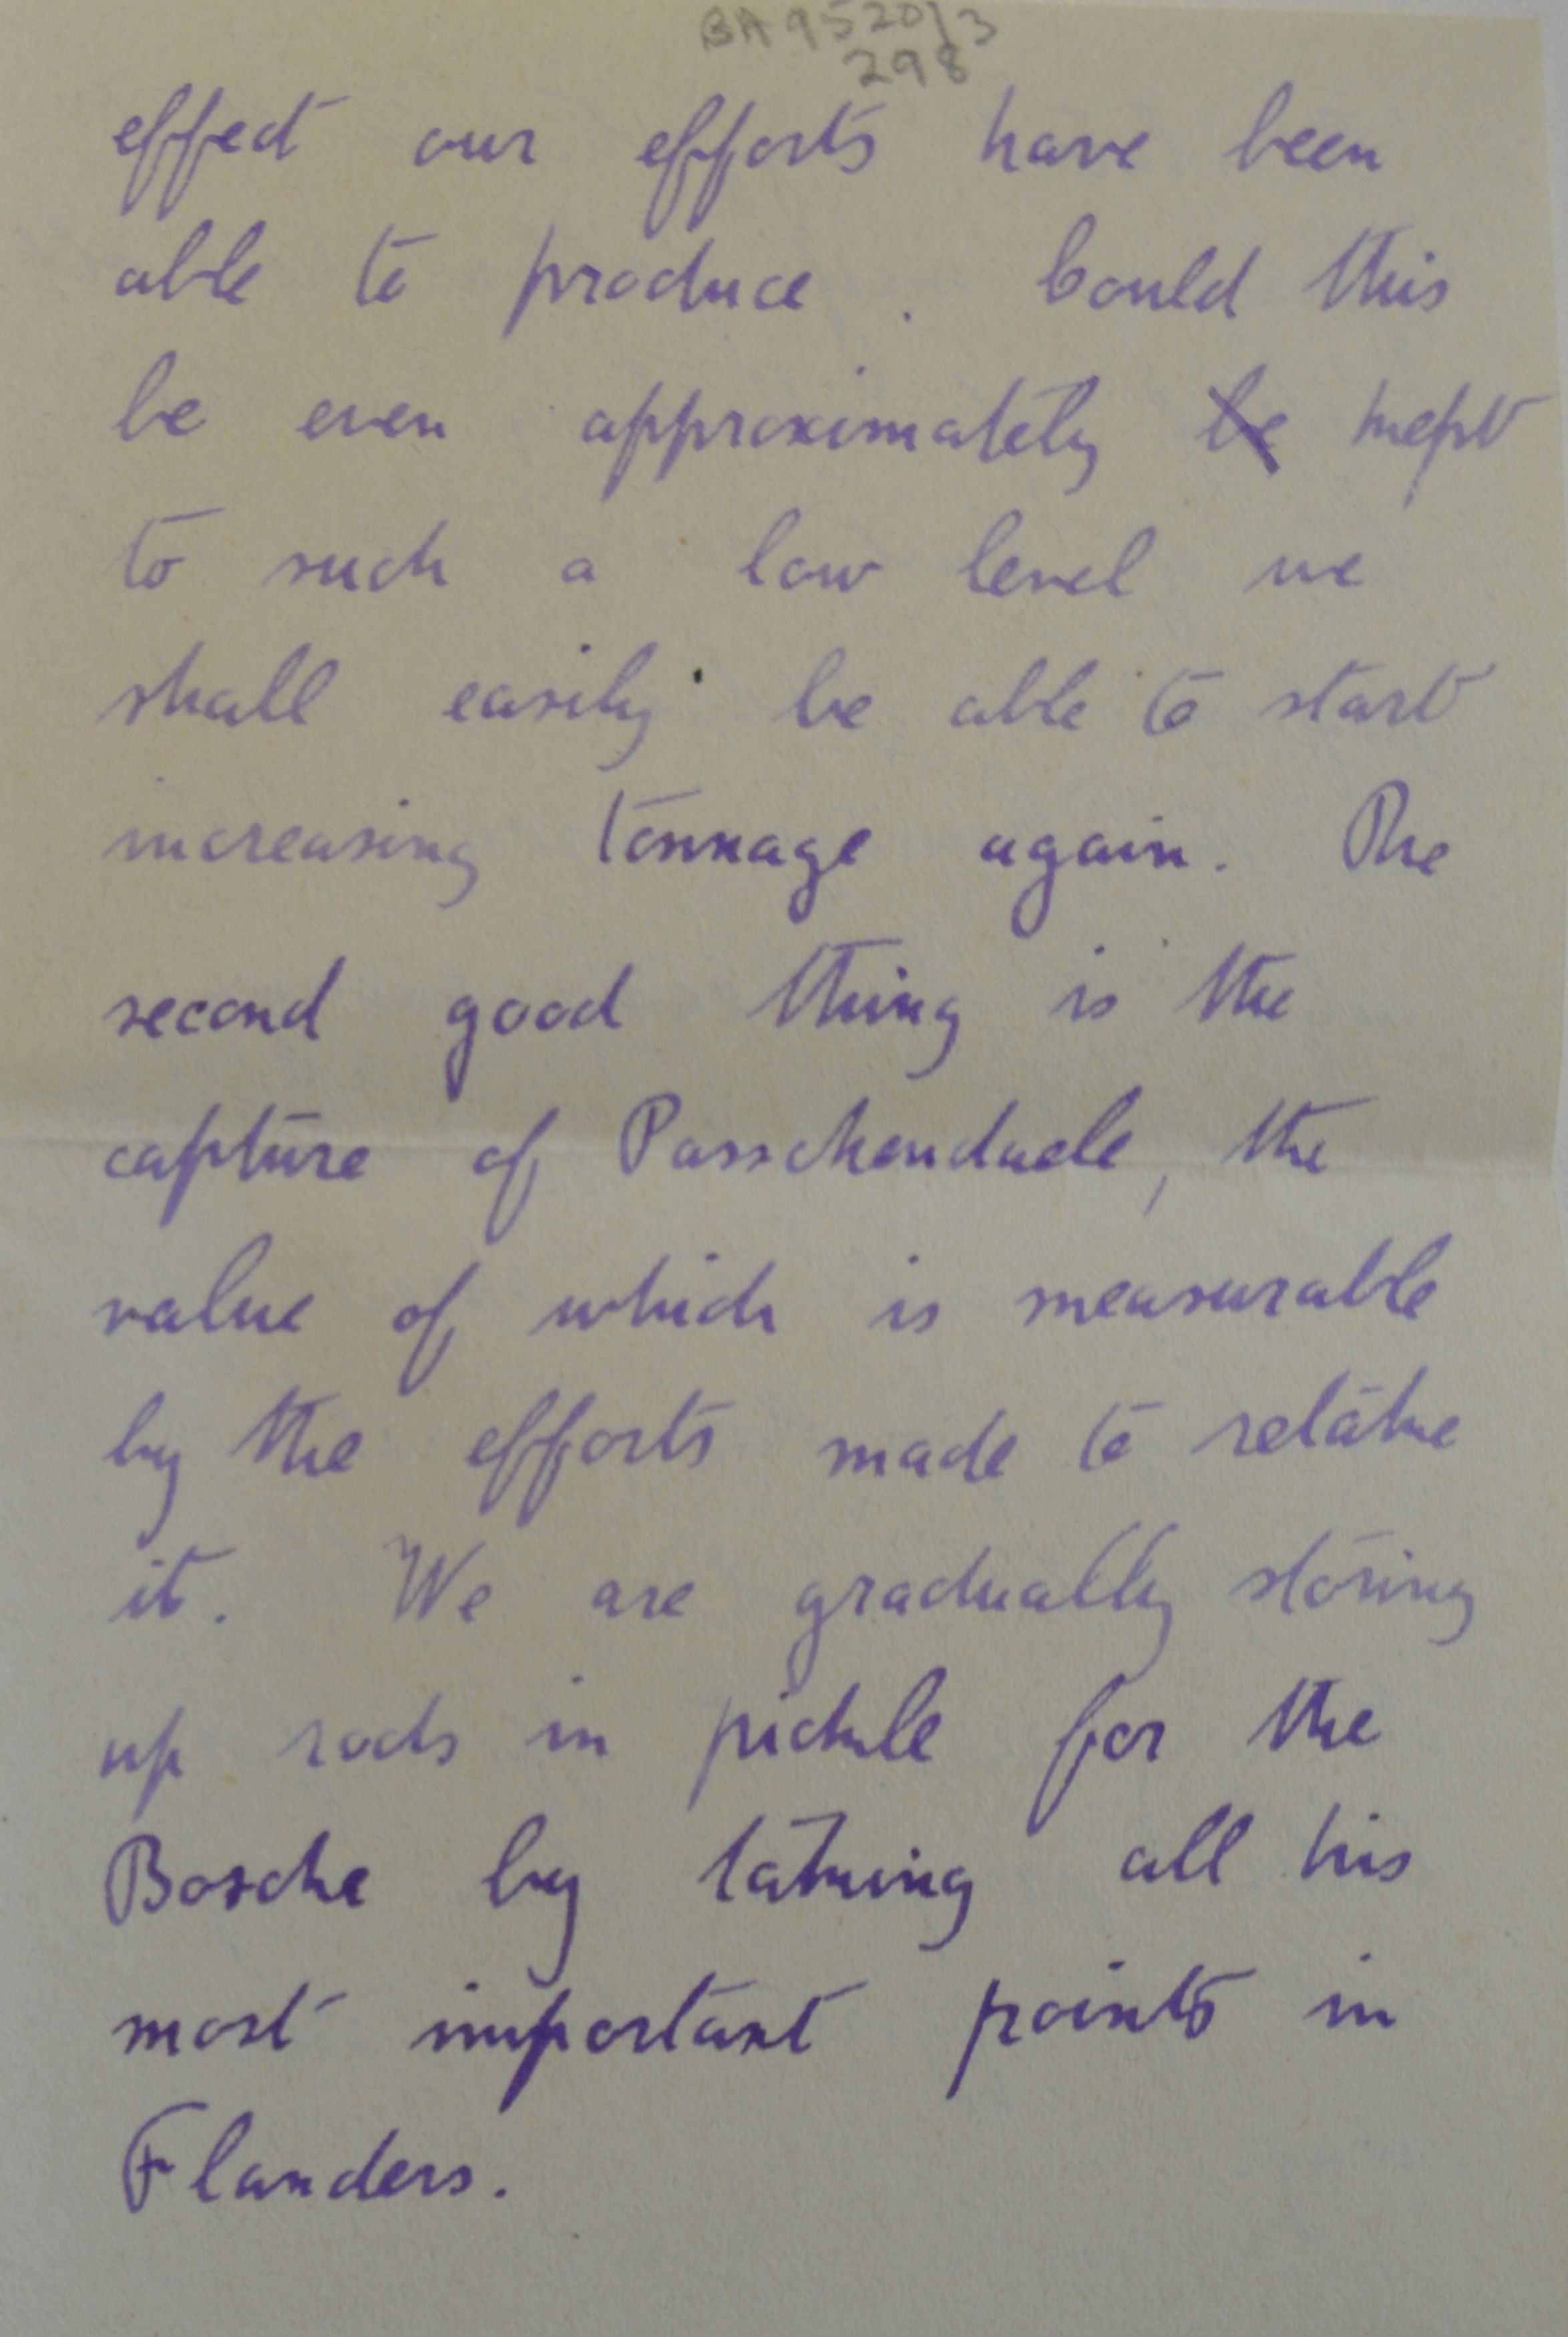 BA 9520/3
298
effect our efforts have been
able to produce. Could this
be even approximately be kept
to such a low level we
shall easily be able to start
increasing tonnage again. The
second good thing is the
capture of Passchendaele, the
value of which is measurable
by the efforts made to retake
it. We are gradually storing
up rods in pickle for the
Bosche by taking all his
most important points in
Flanders.